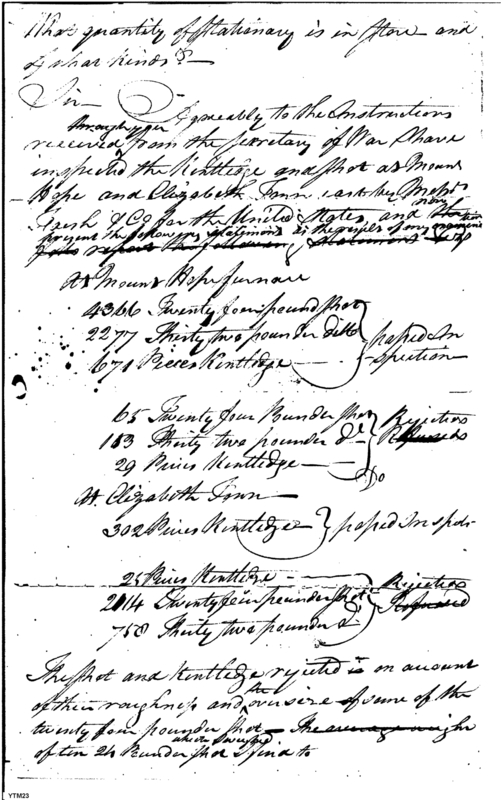 What quantity of Stationary is in Store and
of what kinds? —
Sir — Agreeably to the Instructions
through you
received from the Secretary of War I have
inspected the Kentledge and shot at Mount
Hope and Elizabeth Town cast by Messrs
& Co for the United States, and now
present the following statement as the result of my
At Mount Hope furnace
4366 Twenty four pound shot
2277 Thirty two pounder ditto
671 Pieces Kentledge —
passed In
spection —
65 Twenty four Pounder shot
113 Thirty two pounder do
29 Pieces Kentledge — —
Rejected
Do
At Elizabeth Town —
302 Pieces Kentledge
passed Inspec-
25 Pieces Kentledge —
2014 Twenty four pounder shot
758 Thirty two pounder do
Rejected
The shot and Kentledge rejected is on account
of their roughness and the oversize of some of the
twenty four pounder shot — The average weight
of ten 24 Pounder shot I find to
YTM23